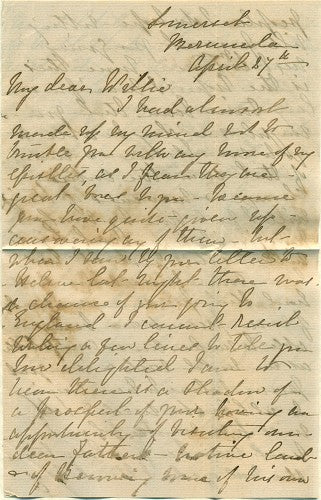 Somerset
Bermuda
April 27th
My dear Willie
I had almost
made up my mind not to
trouble you with any more of my
epistles, as I fear they are
great bores to you – because
you have quite given up
answering any of them – but
when I in your letter to
last night there was
a chance of your going to
England I cannot resist
writing a few lines to tell you
how delighted I am to
hear there is a shadow of
a prospect of your having an
opportunity of visiting our
dear Father's native land
& of seeing some of his own